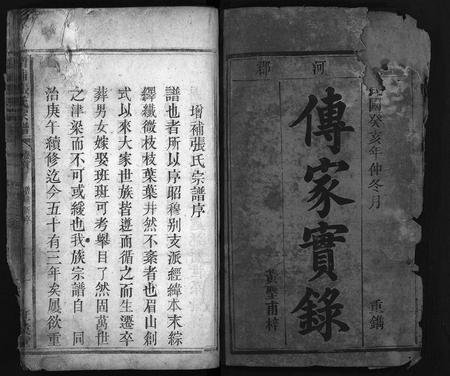 民國癸亥年仲冬月
河
郡
傳家實錄
重鐫
甫梓
增補張氏宗譜序
譜也者所以序昭穆别支派經緯本末綜
繹纖微枝枝葉葉井然不紊者也眉山創
式以來大家世族皆遵而循之而生遷卒
葬男女嫁娶班班可考舉目了然固萬世
之津梁而不可或緩也我族宗譜自 同
治庚午續修迄今五十有三年矣屢欲重